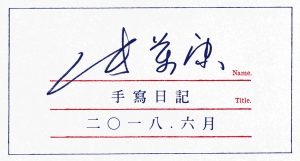 Name.
手寫日記
Title.
二〇一八.六月